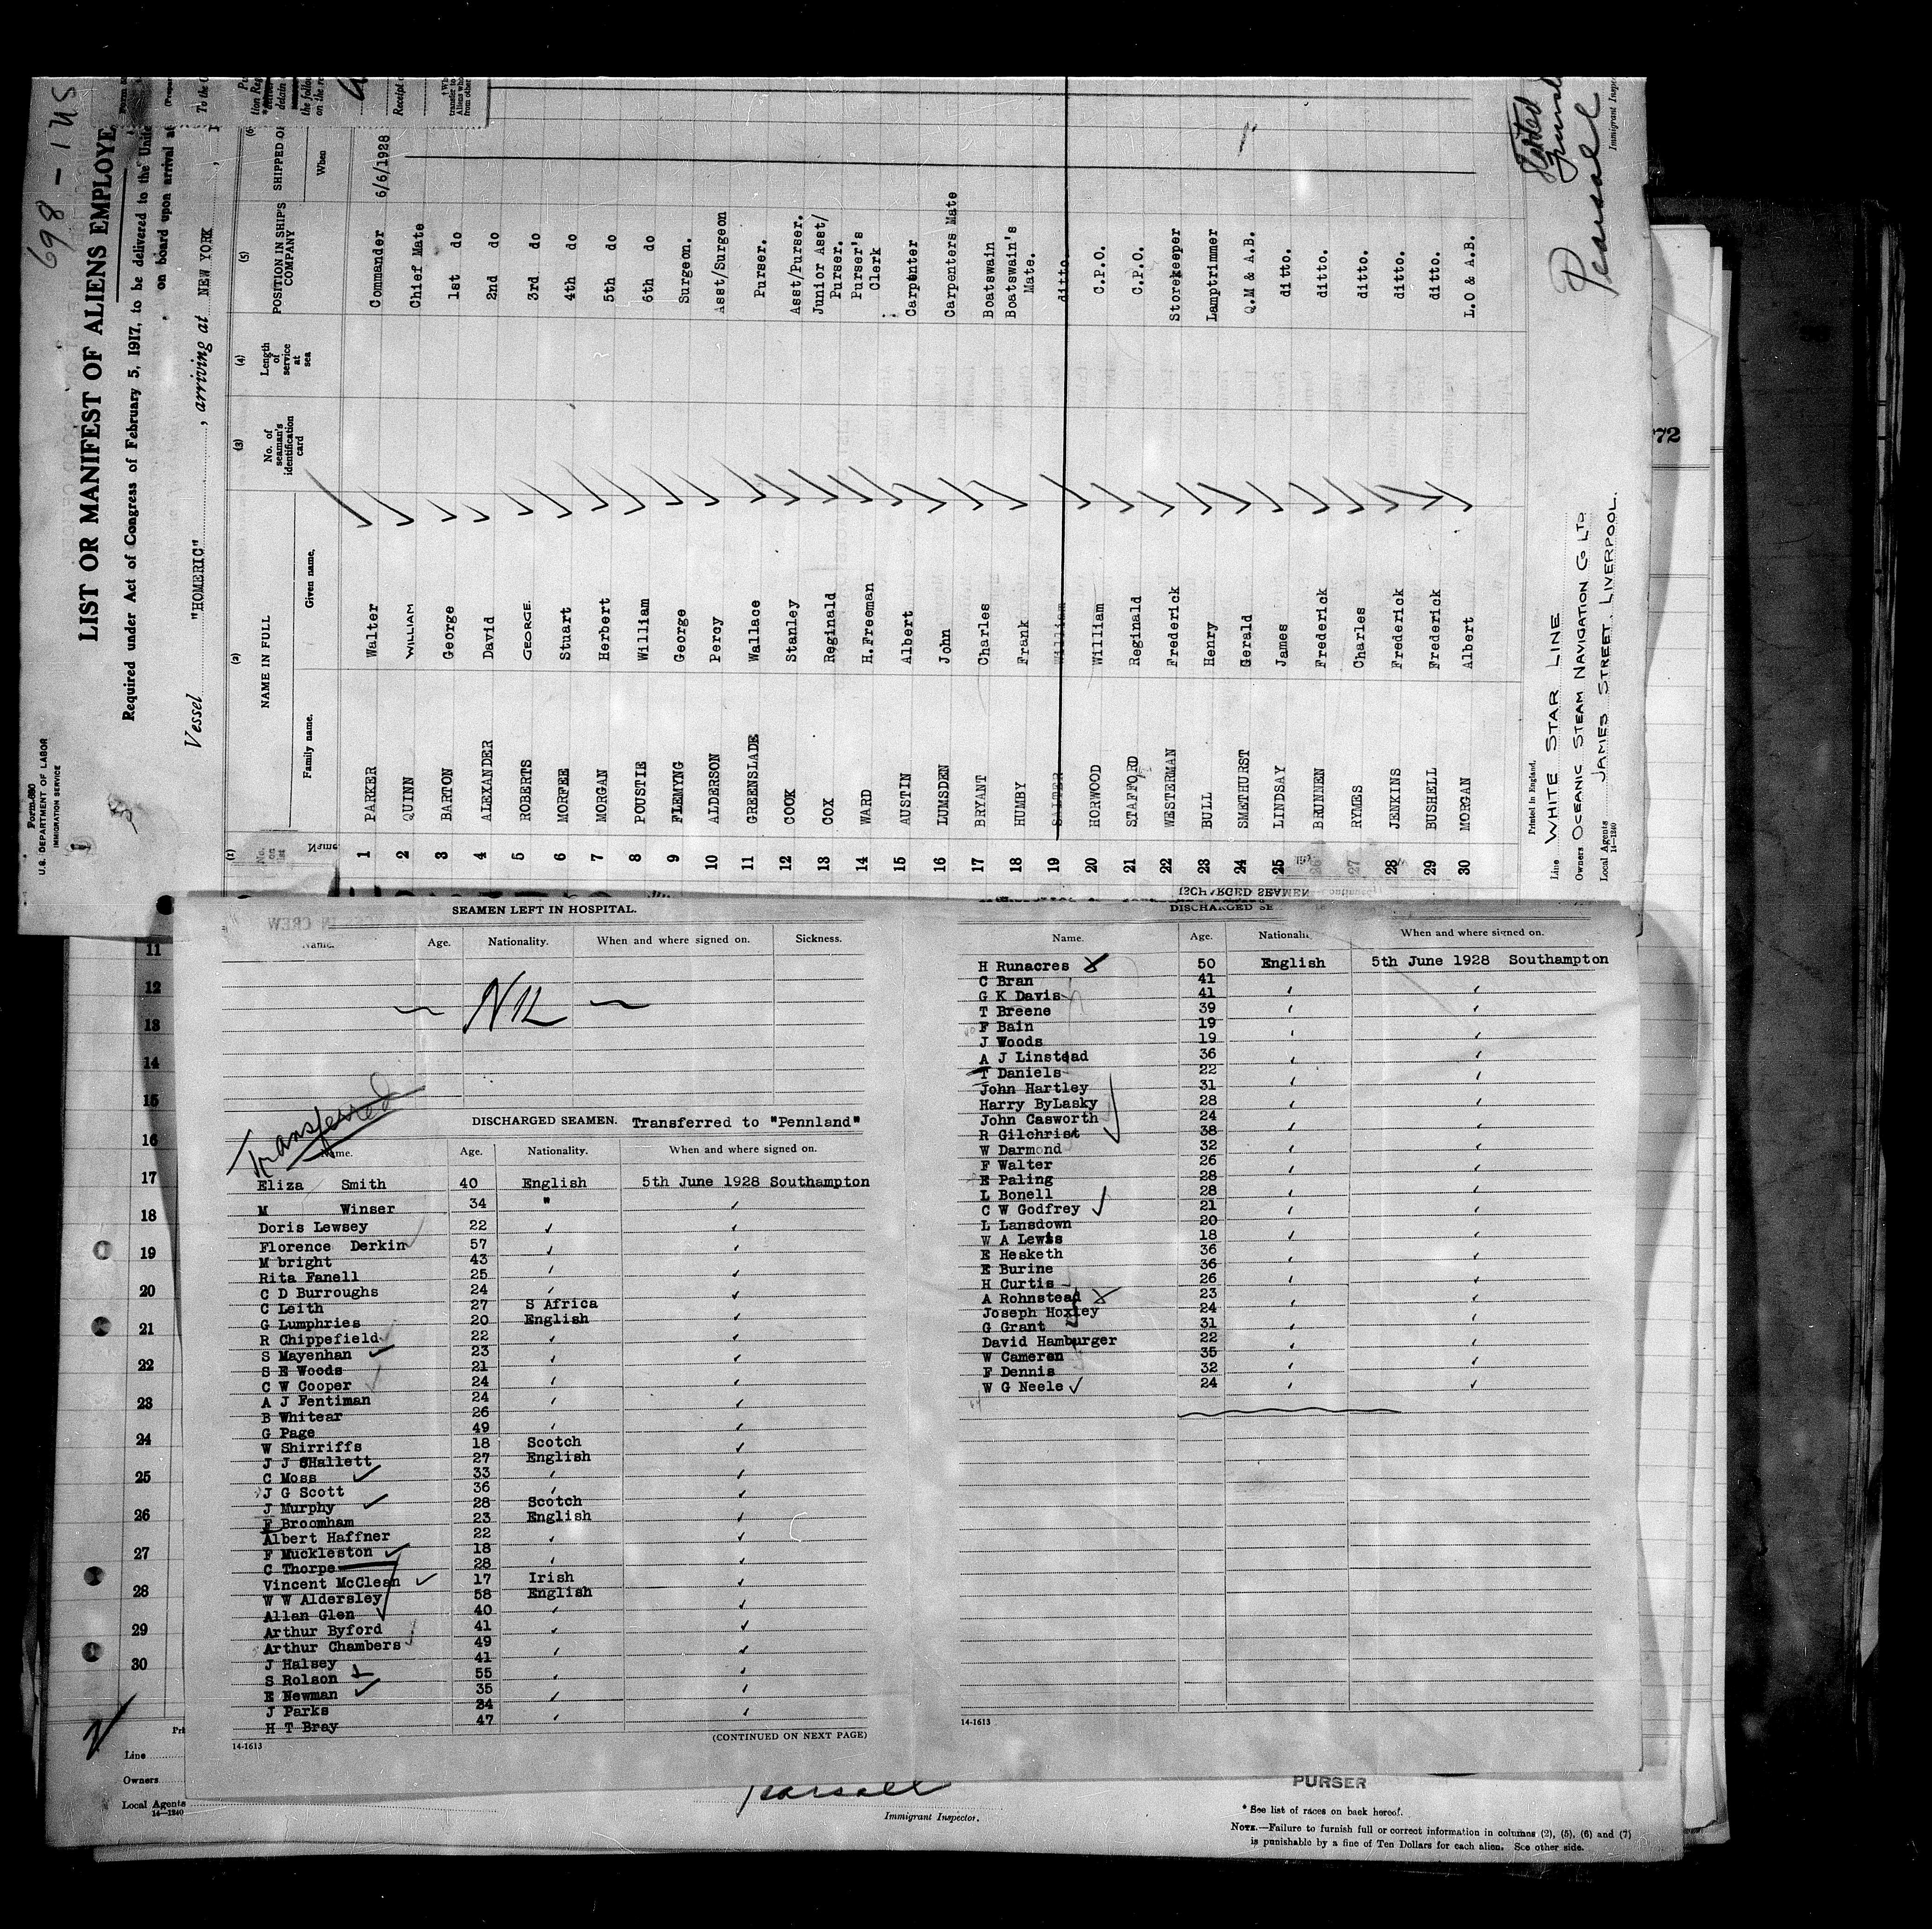 698-1
Form 680
U.S. DEPARTMENT OF LABOR
IMMIGRATION SERVICE
LIST OR MANIFEST OF ALIENS EMPLOYE
Required under Act of Congress of February 5, 1917, to be delivered to the Unite
on board upon arrival at
Vessel "HOMERIC", arriving at NEW YORK
(1) (2) (3) (4) (5)
NAME IN FULL No. of seaman's identification card Length of service at sea POSITION IN SHIP'S COMPANY SHIPPED O
Family name. Given name. When
1 PARKER Walter Commander 6/6/1928
2 QUINN WILLIAM Chief Mate
3 BARTON George 1st do
4 ALEXANDER David 2nd do
5 ROBERTS GEORGE. 3rd do
6 MORFEE Stuart 4th do
7 MORGAN Herbert 5th do
8 POUSTIE William 6th do
9 FLEMYNG George Surgeon.
10 ALDERSON Percy Asst/Surgeon
11 GREENSLADE Wallace Purser.
12 COOK Stanley Asst/Purser.
13 COX Reginald Junior Asst/ Purser.
14 WARD H.Freeman Purser's Clerk
15 AUSTIN Albert Carpenter
16 LUMSDEN John Carpenters Mate
17 BRYANT Charles Boatswain
18 HUMBY Frank Boatswain's Mate.
19 SALTER William ditto.
20 HORWOOD William C.P.O.
21 STAFFORD Reginald C.P.O.
22 WESTERMAN Frederick Storekeeper
23 BULL Henry Lamptrimmer
24 SMETHURST Gerald Q.M & A.B.
25 LINDSAY James ditto.
26 BRUNNEN Frederick ditto.
27 RYMES Charles ditto.
28 JENKINS Frederick ditto.
29 BUSHELL Frederick ditto.
30 MORGAN Albert L.O & A.B.
Printed in England.
Line WHITE STAR LINE
Owners OCEANIC STEAM NAVIGATION CO LTD
Local Agents JAMES STREET, LIVERPOOL.
14-1240
Pearsael
Immigrant Inspe
72
SEAMEN LEFT IN HOSPITAL.
Name. Age. Nationality. When and where signed on. Sickness.
NIL
Transferred
DISCHARGED SEAMEN. Transferred to "Pennland"
Name. Age. Nationality. When and where signed on.
Eliza Smith 40 English 5th June 1928 Southampton
M Winser 34 "
Doris Lewsey 22
Florence Derkin 57
M bright 43
Rita Fanell 25
C D Burroughs 24
C Leith 27 S Africa
G Lumphries 20 English
R Chippefield 22
S Mayenhan 23
S E Woods 21
C W Cooper 24
A J Fentiman 24
B Whitear 26
G Page 49
W Shirriffs 18 Scotch
J J SHallett 27 English
C Moss 33
J G Scott 36
J Murphy 28 Scotch
F Broomham 23 English
Albert Haffner 22
F Muckleston 18
C Thorpe 28
Vincent McClean 17 Irish
W W Aldersley 58 English
Allan Glen 40
Arthur Byford 41
Arthur Chambers 49
J Halsey 41
S Rolson 55
E Newman 35
J Parks 34
H T Bray 47
14-1613
(CONTINUED ON NEXT PAGE)
DISCHARGED SE
Name. Age. When and where signed on.
H Runacres 50 English 5th June 1928 Southampton
C Bran 41
G K Davis 41
T Breene 39
F Bain 19
J Woods 19
A J Linstead 36
T Daniels 22
John Hartley 31
Harry ByLasky 28
John Casworth 24
R Gilchrist 38
W Darmond 32
F Walter 26
E Paling 28
L Bonell 28
C W Godfrey 21
L Lansdown 20
W A Lewis 18
E Hesketh 36
E Burine 36
H Curtis 26
A Rohnstead 23
Joseph Hoxley 24
G Grant 31
David Hamburger 22
W Cameron 35
F Dennis 32
W G Neele 24
14-1613
11
12
13
14
15
16
17
18
19
20
21
22
23
24
25
26
27
28
29
30
Line
Owners
Local Agents
14-1240
Immigrant Inspector.
PURSER
* See list of races on back hereof.
NOTE.—Failure to furnish full or correct information in columns (2), (5), (6) and (7)
is punishable by a fine of Ten Dollars for each alien. See other side.